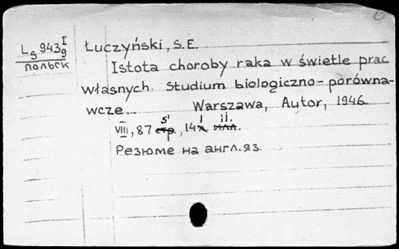 Ls 943 I/9
польск
Łuczyński, S.E.
Istota choroby raka w świetle prac
własnych. Studium biologiczno-porówna-
wcze... Warszawa, Autor, 1946.
VIII, 87 s., 14 l. il.
Резюме на англ. яз.